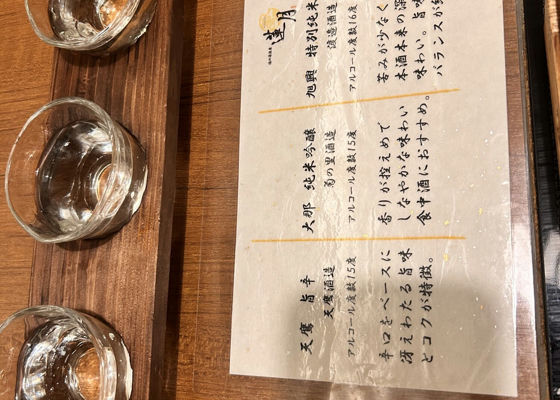 天鷹 旨辛
天鷹酒造
アルコール度数15度
辛口をベースに
冴えわたる旨味
とコクが特徴。
大那 純米吟醸
菊の里酒造
アルコール度数15度
香りが控えめで
しなやかな味わい
食中酒におすすめ。
蓮月
旭興 特別純米
渡邉酒造
アルコール度数16度
苦みが少なく
本酒本来の深
味わい。旨味
バランスが